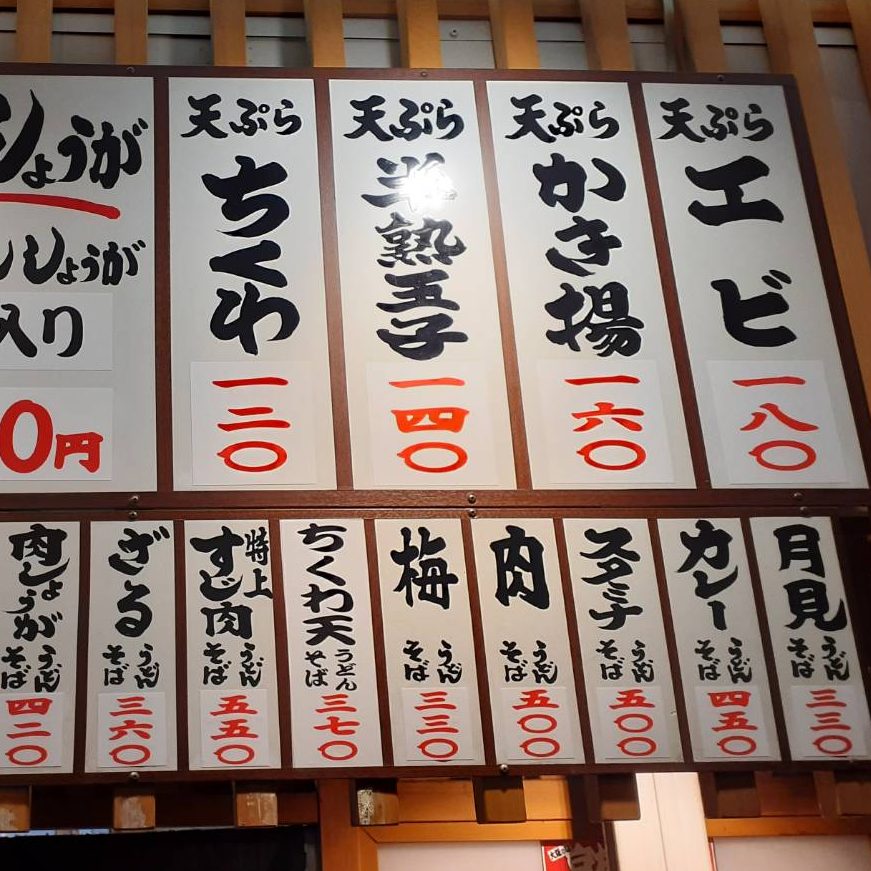 天ぷら エビ 一八〇
天ぷら かき揚 一六〇
天ぷら 半熟玉子 一四〇
天ぷら ちくわ 一二〇
しょうが
しょうが
入り
0円
月見 うどん そば 三三〇
カレー うどん そば 四五〇
スタミナ うどん そば 五〇〇
肉 うどん そば 五〇〇
梅 うどん そば 三三〇
ちくわ天 うどん そば 三七〇
特上 すじ肉 うどん そば 五五〇
ざる うどん そば 三六〇
肉しょうが うどん そば 四二〇